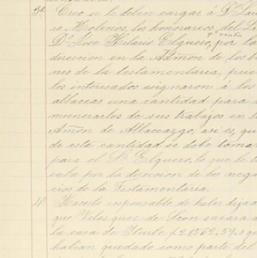 Creo se le deben cargar á D. 
Molinos, los honorarios del
D. Hilario Elguero, por la
direccion en la Admon. de los
nes de la testamentaria, pues
los interesados asignaron á los
albaceas una cantidad para
munerarles de sus trabajos en la
Admon. de Albaceazgo, así es, que
de esta cantidad se debe toma
para el D. Elguero, lo que le to
caba por la direccion de los nego
cios de la Testamentaria.
responsable de haber dejado
que de Leon sacara
la casa de
habian quedado como parte del